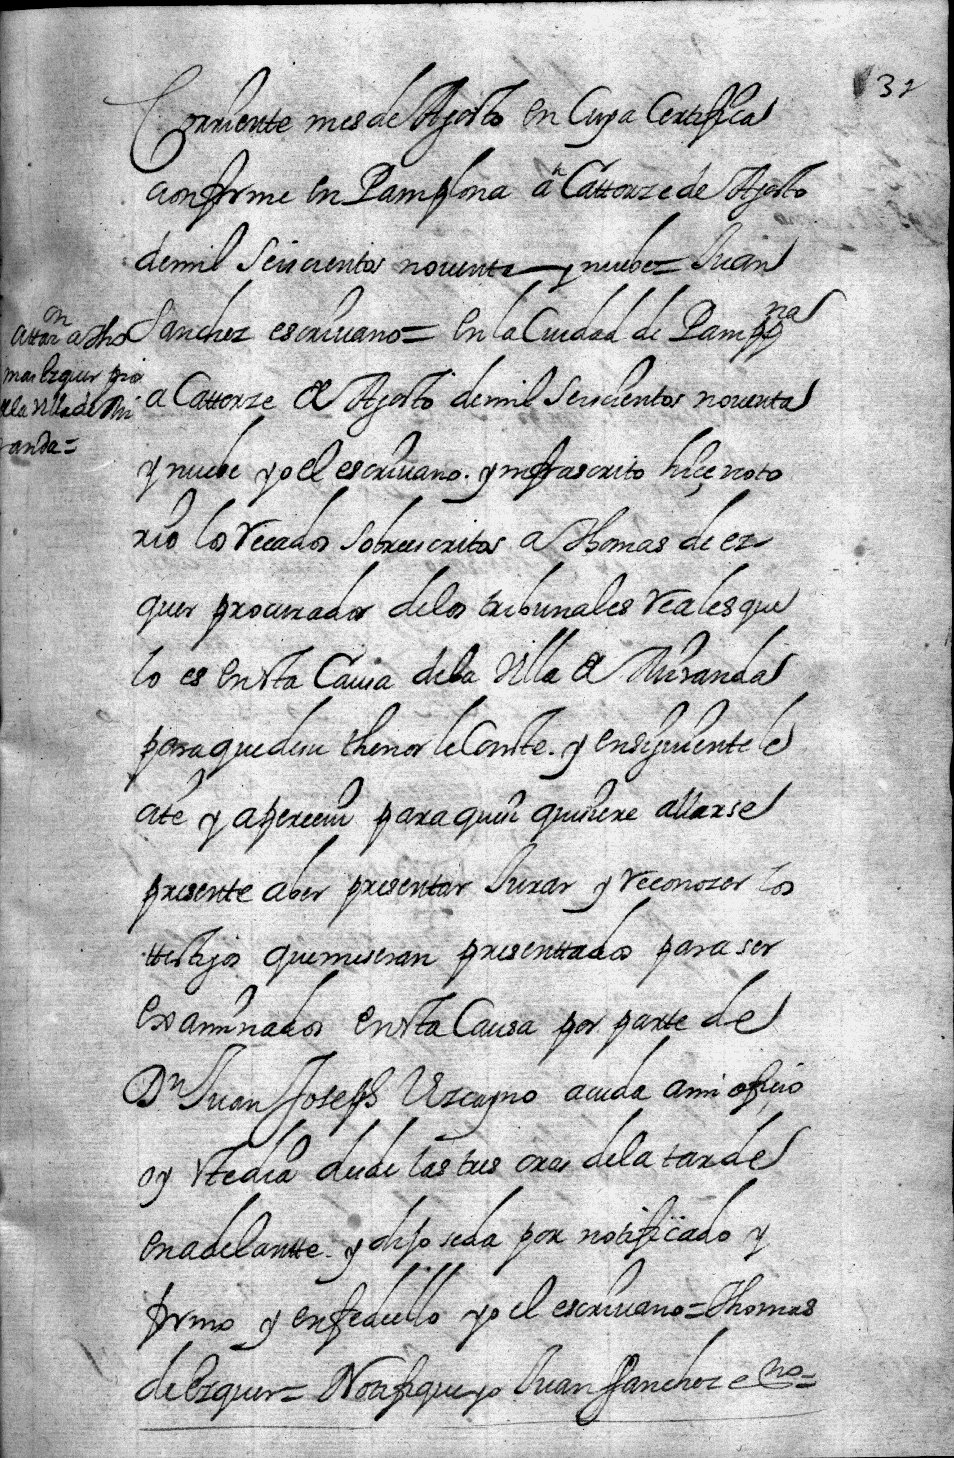 32
Corriente mes de Agosto en Cuya Certifica
cion firme en Pamplona a Cattorze de Agosto
de mil Seiscientos nouenta y nuebe = Juan
Sanchez escriuano = en la Ciudad de Pampna
a Cattorze de Agosto de mil Seiscientos nouenta
y nuebe yo el escriuano ynfrascrito hiçe noto
rio los Recados Sobreescritos a Thomas de ez
quer procurador de los tribunales Reales que
lo es en esta Causa de la Villa de Miranda
para que de su thenor le Conste. y ensiguiente le
çite y aperceui para que si quisiere allarse
presente aber presentar Jurar y reconozer los
ttestigos que
presenttados para ser
examinados en esta Causa por parte de
Dn Juan Joseph Vzcayno acuda a mi ofiçio
oy este dia desde las tres oras de la tarde
en adelantte. y dijo se da por notificado y
firmo y en fe de ello yo el escriuano = Thomas
de Ezquer = Notifique yo Juan Sanchez esno =
on
Cittaz a Tho
mas Ezquer pro
de la Villa de Mi
randa =